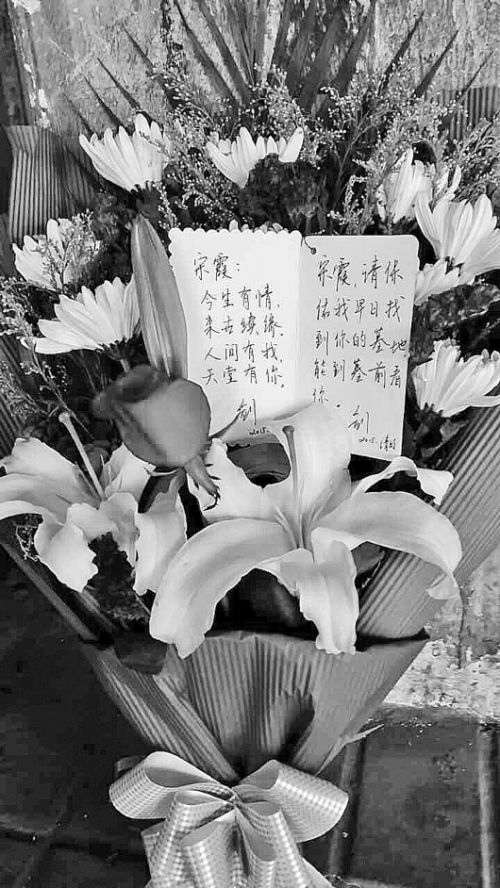 宋霞:
今生有情,
来古续缘.
人间有我,
天堂有你.
剑
2015.
宋霞,请保
佑我早日找
到你的墓地
能到墓前看
你.
剑
2015.清明